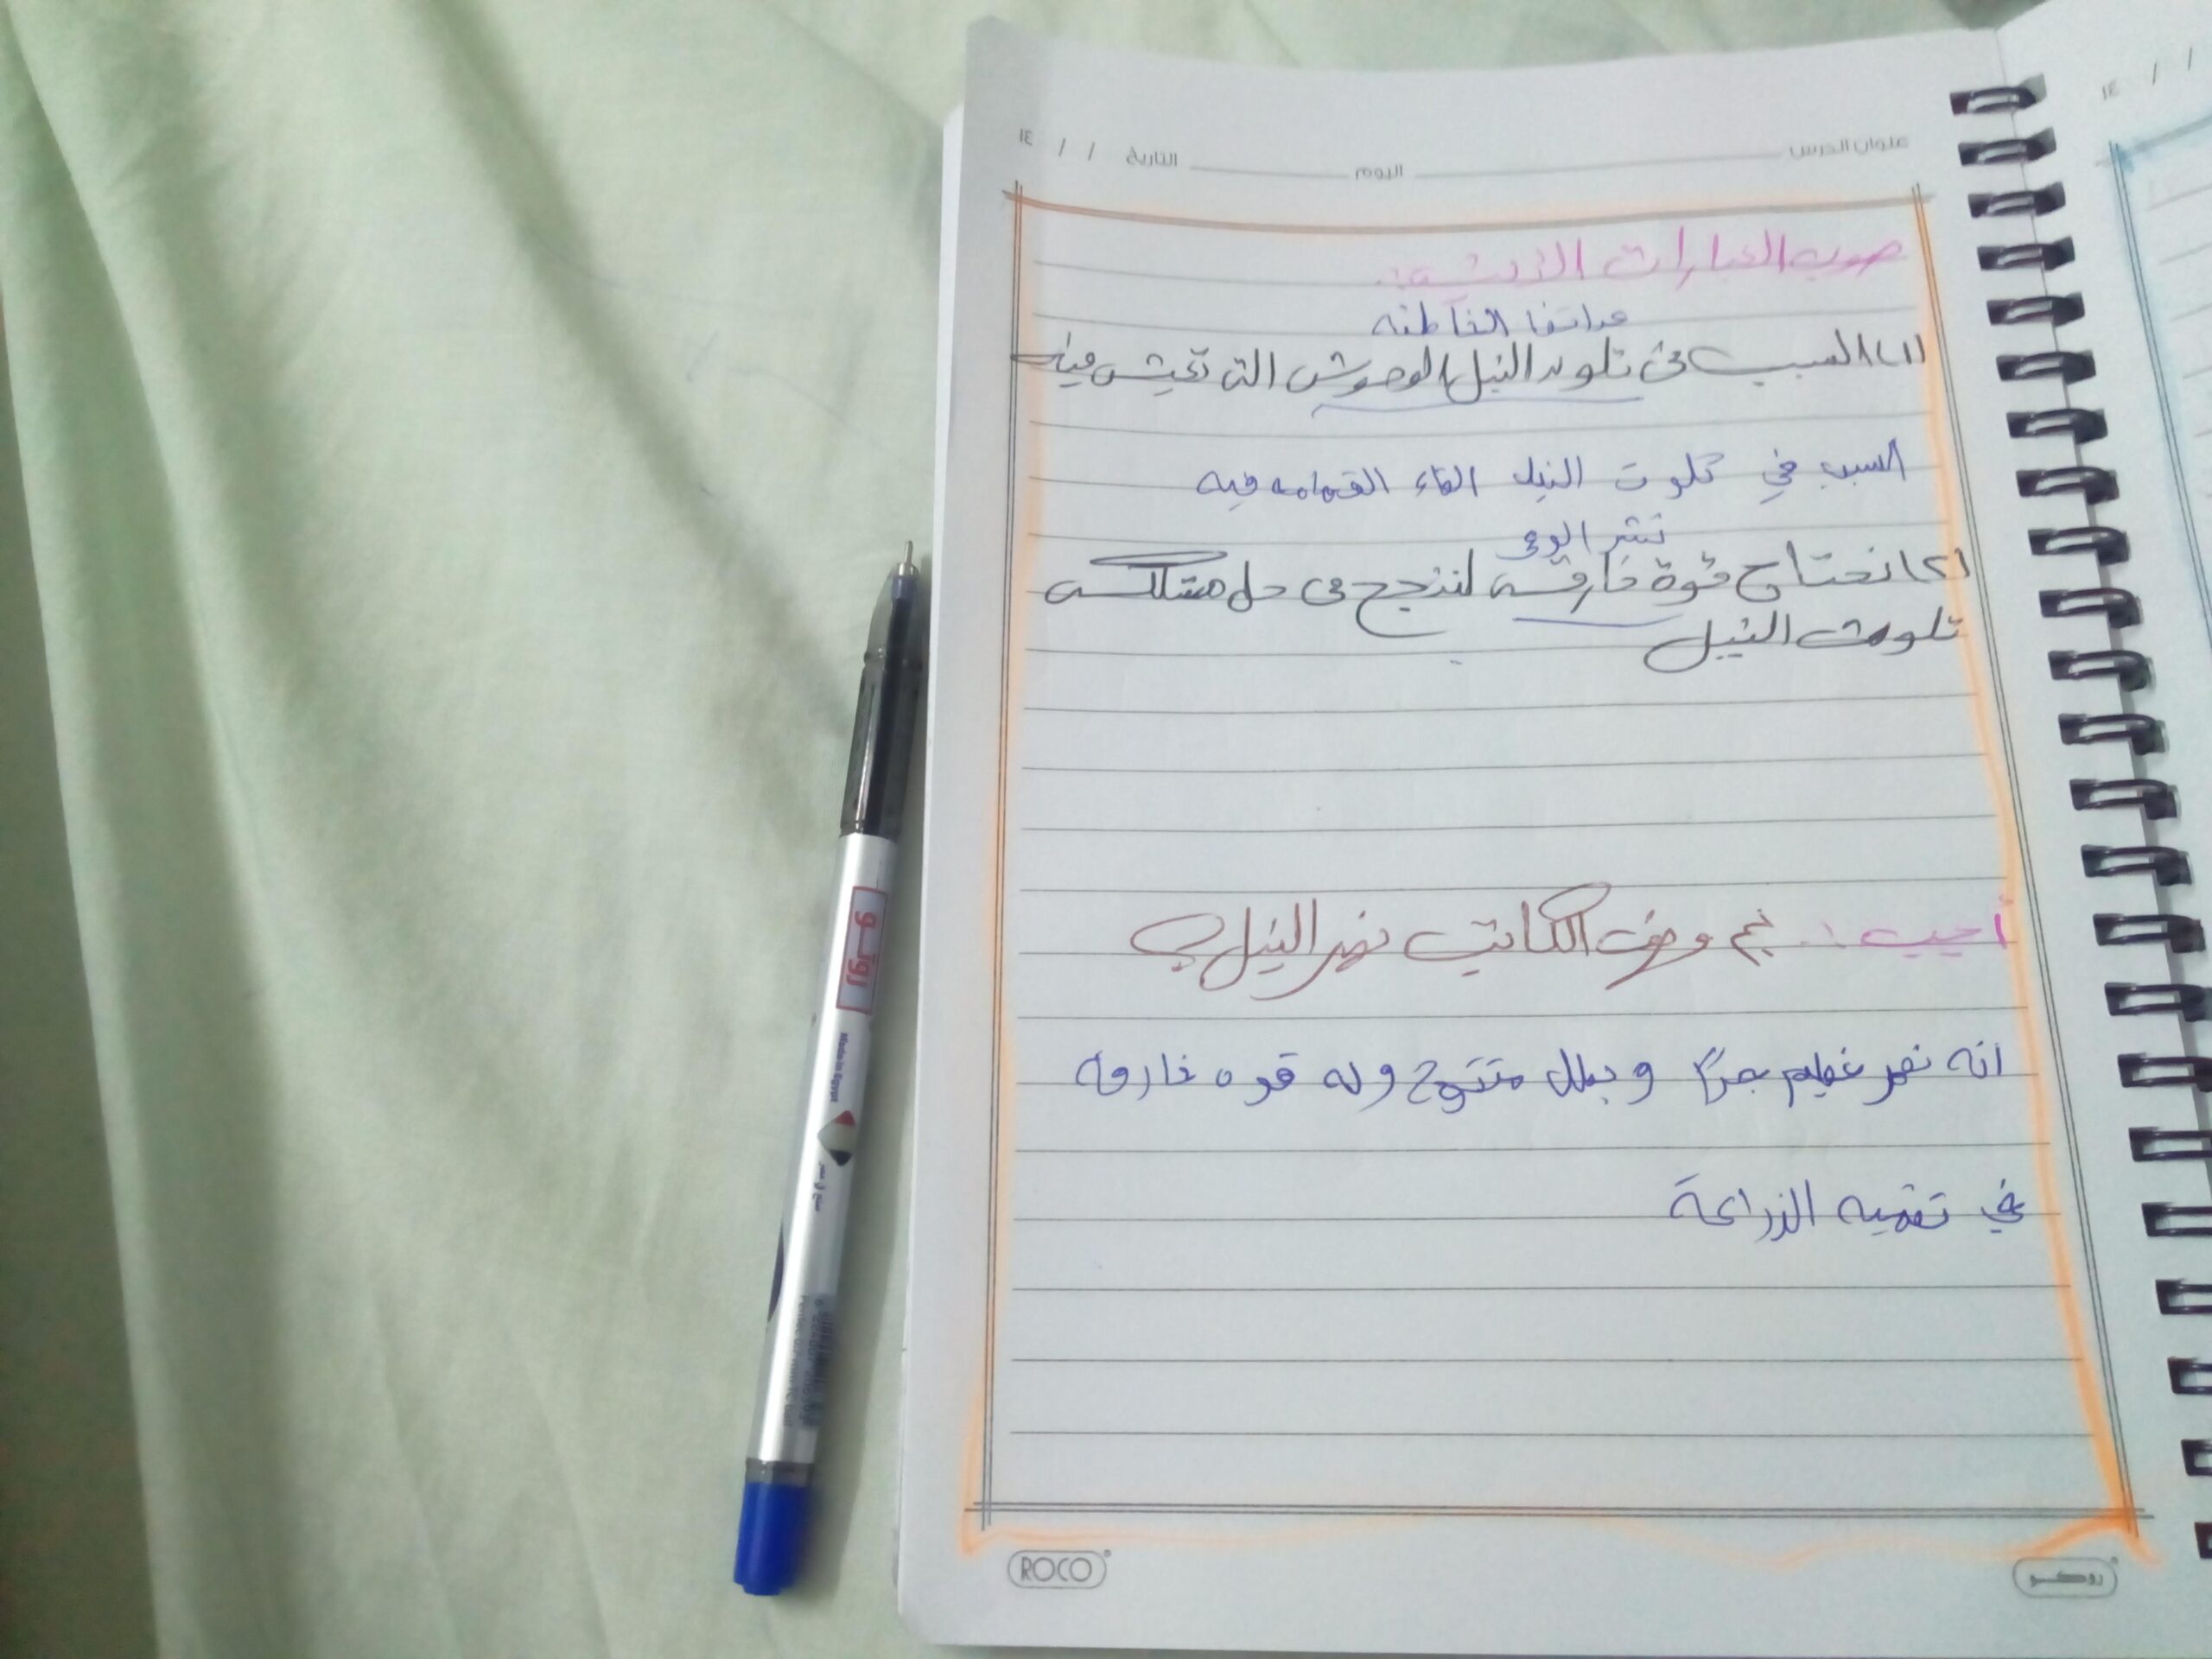 عنوان الدرس اليوم التاريخ / / ١٤
صوب العبارات الآتية:
عراتفا الخاطئه
(١) السبب في تلوث النيل الوحوش التي تعيش فيه
السبب في تلوث النيل القاء القمامه فيه
نشر الوعي
(٢) نحتاج قوة خارقه لننجح في حل مشكله
تلوث النيل
أجيب : بم وصف الكاتب نهر النيل ؟
انه نهر عظيم جدًا وبطل متتوج وله قوه خارقه
في تنميه الزراعة
ROCO
روكو
روتو
Made in Egypt
صنع في مصر
١٤ / /